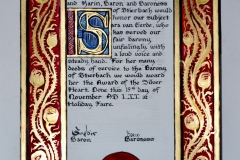 and Karin, Baron and Baroness
of Dsierbach would
honor our subject
ara van Eerde, who
has served our
fair barony,
unfailingly with
a loud voice and
steady hand. For her many
deeds of service to the Barony
of Dsierbach we would award
her the Award of the Silver
Heart. Done this 19th day of
November AD LII at
Holiday Faire.
Baron Baroness